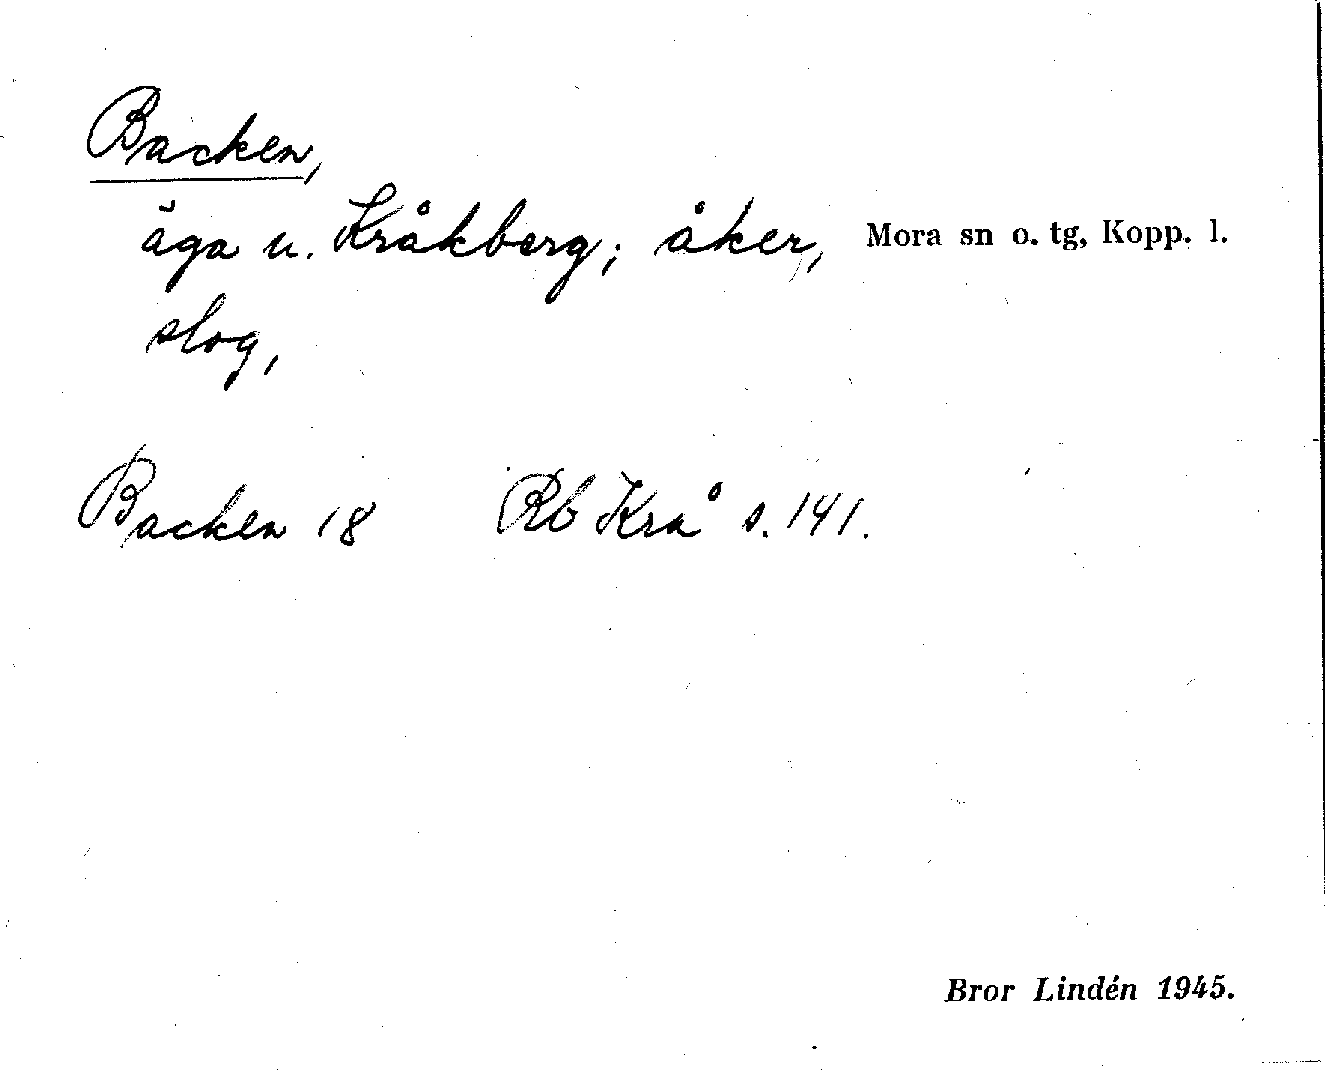 Backen,
äga u. Kråkberg; åker, Mora sn o. tg, Kopp. l.
slog,
Backen 18 Rb Krå s. 141.
Bror Lindén 1945.